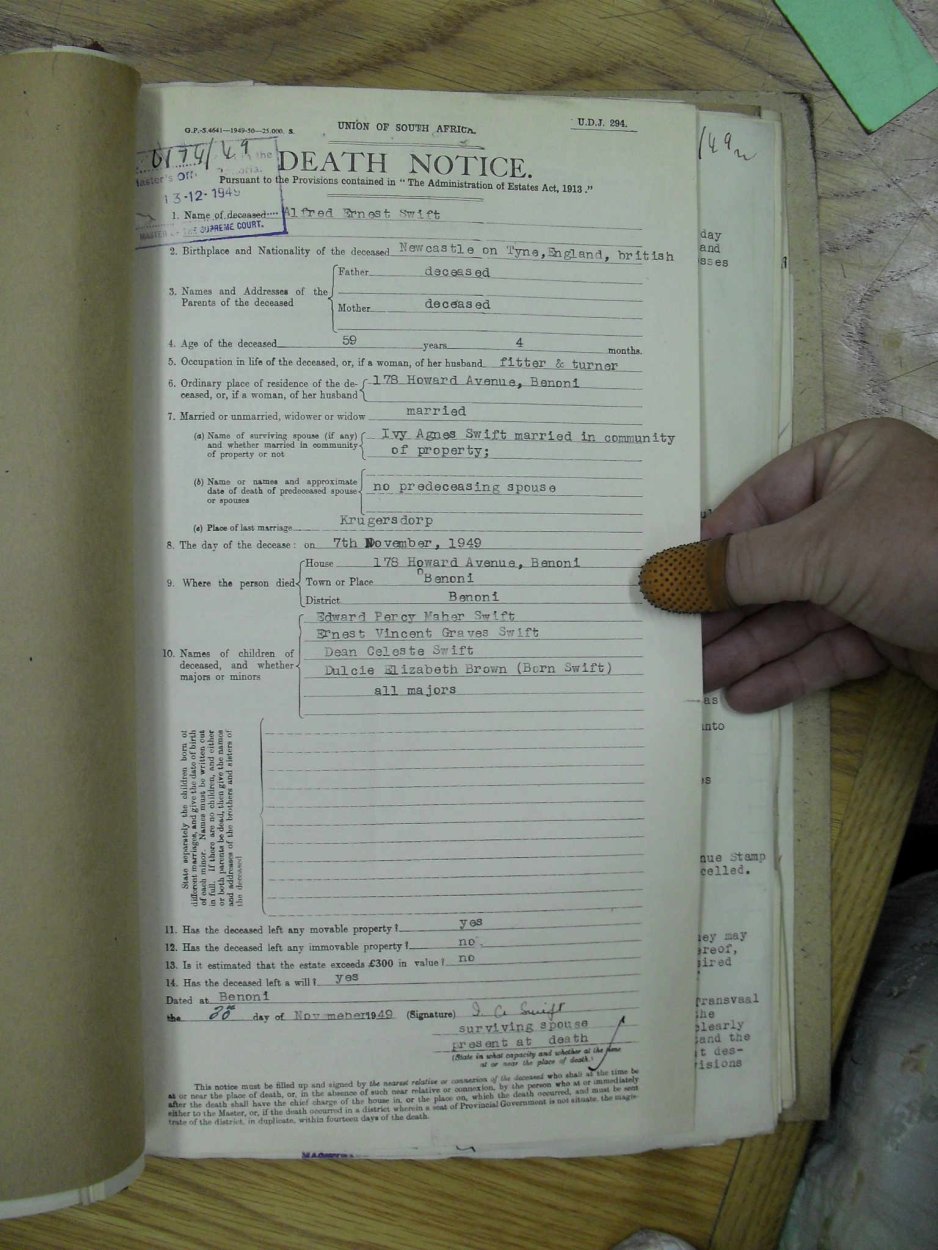 G.P.-S.4641—1949-50—25,000. S.
UNION OF SOUTH AFRICA.
U.D.J. 294.
6174/49
DEATH NOTICE.
Pursuant to the Provisions contained in "The Administration of Estates Act, 1913."
13-12-1949
MASTER OF THE SUPREME COURT.
1. Name of deceased Alfred Ernest Swift
2. Birthplace and Nationality of the deceased Newcastle on Tyne,England, british
3. Names and Addresses of the Parents of the deceased
Father deceased
Mother deceased
4. Age of the deceased 59 years 4 months.
5. Occupation in life of the deceased, or, if a woman, of her husband fitter & turner
6. Ordinary place of residence of the de-
ceased, or, if a woman, of her husband
178 Howard Avenue, Benoni
7. Married or unmarried, widower or widow married
(a) Name of surviving spouse (if any)
and whether married in community
of property or not
Ivy Agnes Swift married in community
of property;
(b) Name or names and approximate
date of death of predeceased spouse
or spouses
no predeceasing spouse
(c) Place of last marriage Krugersdorp
8. The day of the decease: on 7th November, 1949
9. Where the person died
House 178 Howard Avenue, Benoni
Town or Place Benoni
District Benoni
10. Names of children of
deceased, and whether
majors or minors
Edward Percy Maher Swift
Ernest Vincent Graves Swift
Dean Celeste Swift
Dulcie Elizabeth Brown (Born Swift)
all majors
State separately the children born of
different marriages, and give the date of birth
of each minor. Names must be written out
in full. If there are no children, and either
or both parents be dead, then give the names
and addresses of the brothers and sisters of
the deceased
11. Has the deceased left any movable property? yes
12. Has the deceased left any immovable property? no
13. Is it estimated that the estate exceeds £300 in value? no
14. Has the deceased left a will? yes
Dated at Benoni
the day of Novmeber1949 (Signature) I A Swift
surviving spouse
present at death
(State in what capacity and whether at the time
at or near the place of death.)
This notice must be filled up and signed by the nearest relative or connexion of the deceased who shall at the time be
at or near the place of death, or, in the absence of such near relative or connexion, by the person who at or immediately
after the death shall have the chief charge of the house in, or the place on, which the death occurred, and must be sent
either to the Master, or, if the death occurred in a district wherein a seat of Provincial Government is not situate, the magis-
trate of the district, in duplicate, within fourteen days of the death.
/49
day
and
sses
as
nto
nue Stamp
celled.
ey may
ereof,
ired
ransvaal
he
learly
and the
t des-
isions